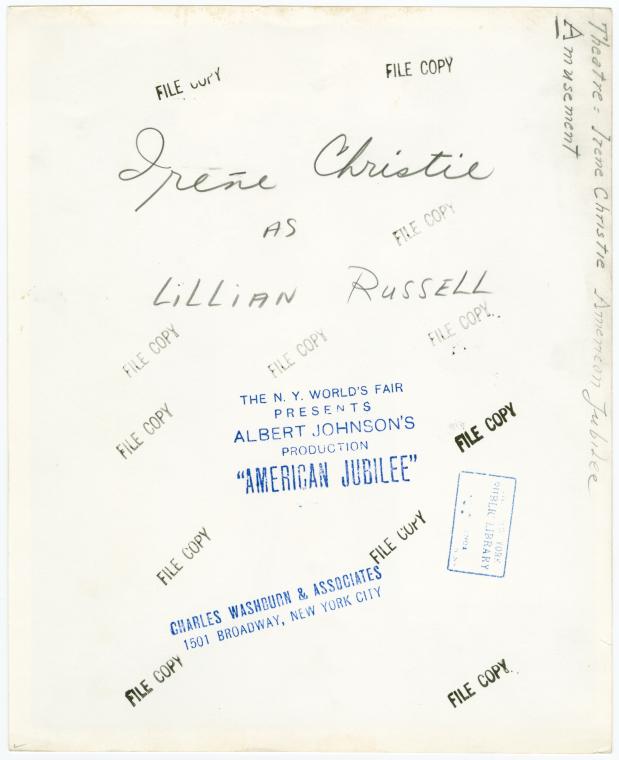 FILE COPY
FILE COPY
Theatre: Irene Christie American Jubilee
Amusement
Irene Christie
AS
FILE COPY
LILLIAN RUSSELL
FILE COPY
FILE COPY
FILE COPY
THE N. Y. WORLD'S FAIR
PRESENTS
ALBERT JOHNSON'S
PRODUCTION
"AMERICAN JUBILEE"
FILE COPY
FILE COPY
YORK
PUBLIC LIBRARY
FILE COPY
FILE COPY
CHARLES WASHBURN & ASSOCIATES
1501 BROADWAY, NEW YORK CITY
FILE COPY
FILE COPY